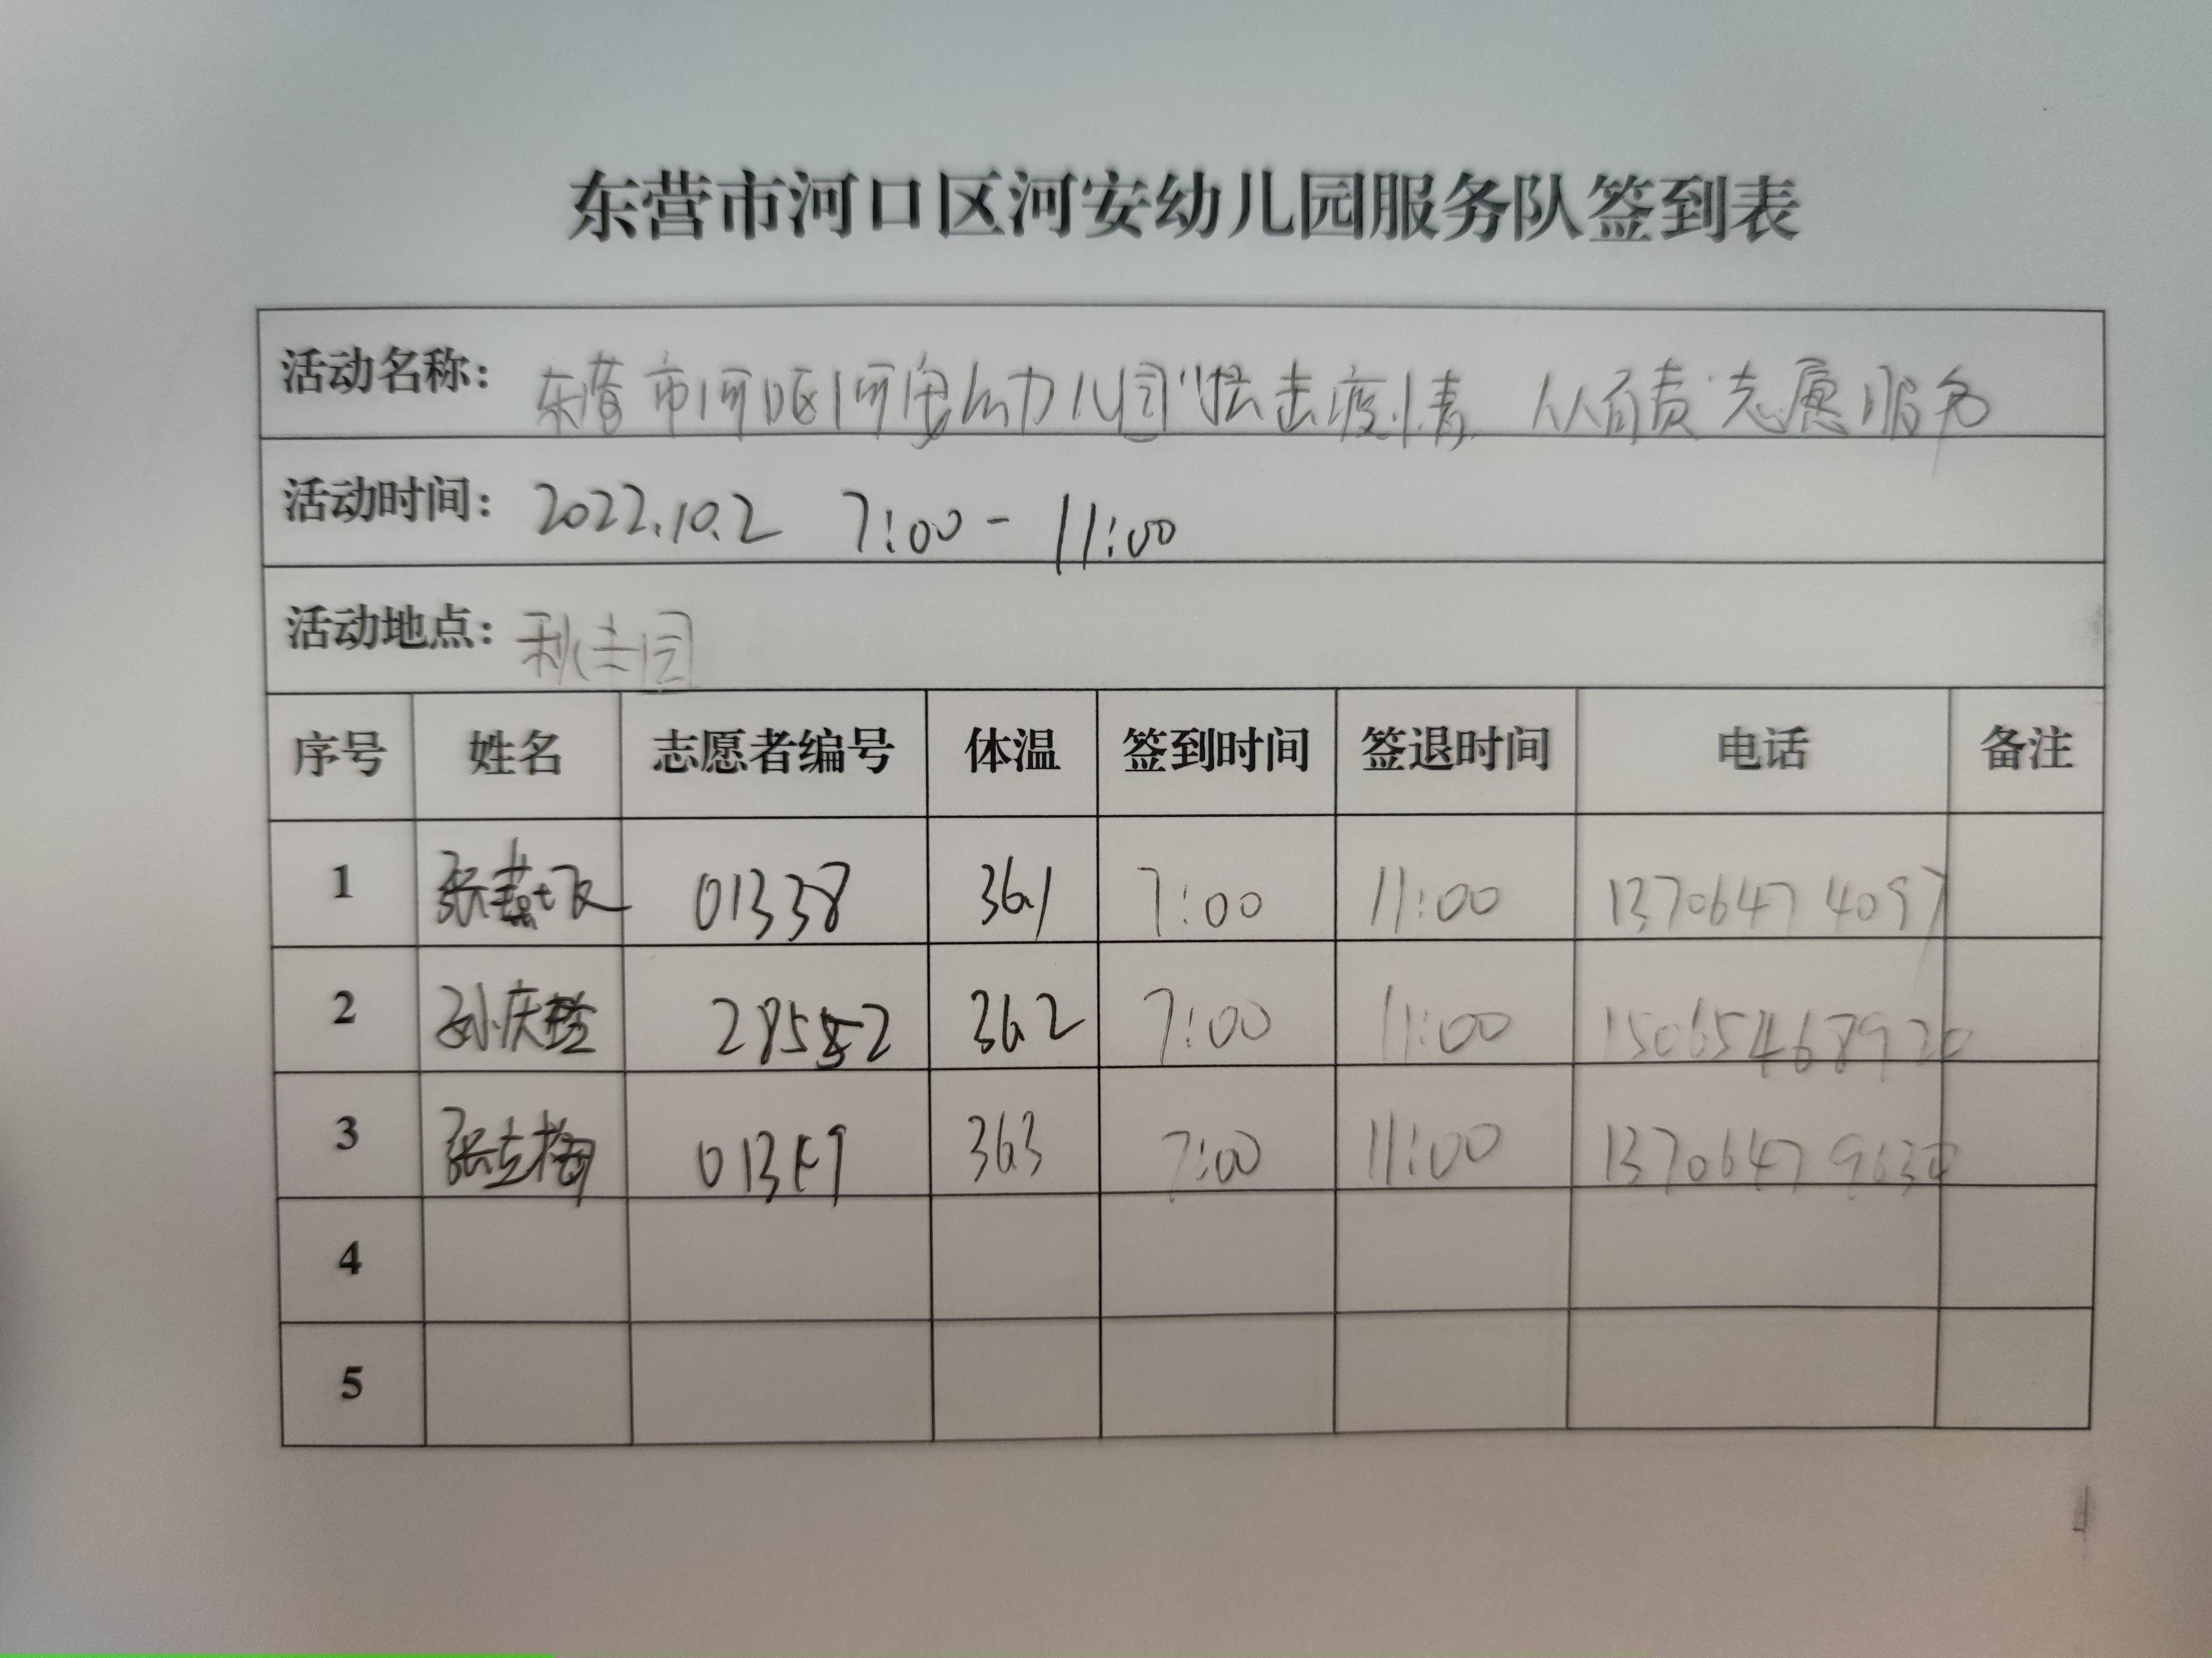 东营市河口区河安幼儿园服务队签到表
活动名称: 东营市河口区河安幼儿园"抗击疫情 人人有责"志愿服务
活动时间: 2022.10.2 7:00-11:00
活动地点:
序号 姓名 志愿者编号 体温 签到时间 签退时间 电话 备注
1 张燕飞 01338 36.1 7:00 11:00 13706474097
2 28552 36.2 7:00 11:00 15065468920
3 张立梅 36.3 7:00 11:00
4
5